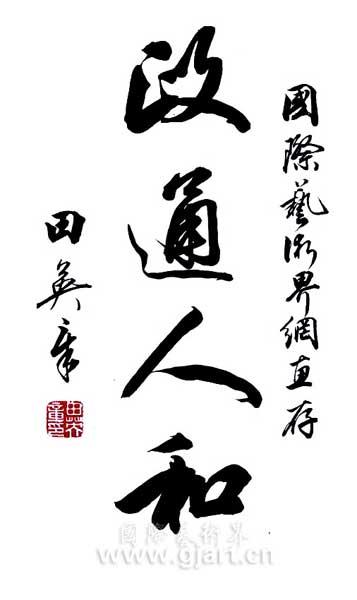 國際藝術界網直存
政通人和
田英章
國際藝術界
www.gjart.cn